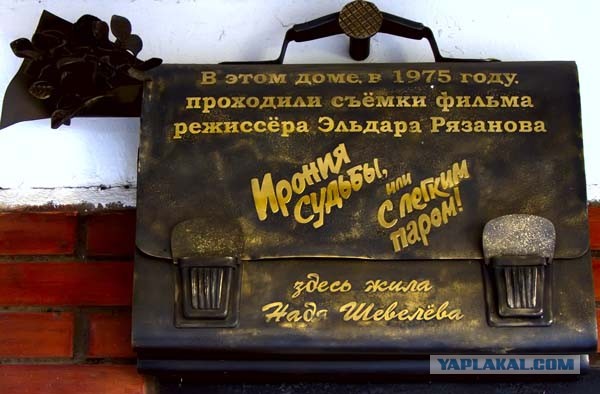 В этом доме, в 1975 году,
проходили съёмки фильма
режиссёра Эльдара Рязанова
Ирония
Судьбы,
или
С легким
паром!
здесь жила
Надя Шевелёва
YAPLAKAL.COM